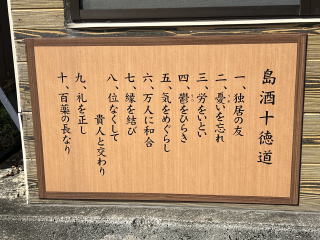 島酒十徳道
一、独居の友
二、憂いを忘れ
三、労をいとい
四、鬱をひらき
五、気をめぐらし
六、万人に和合
七、縁を結び
八、位なくして
貴人と交わり
九、礼を正し
十、百薬の長なり